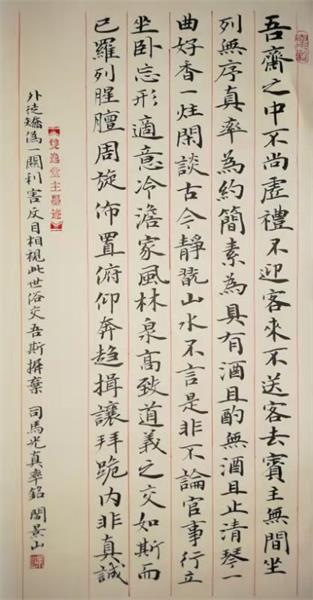 吾齋之中不尚虛禮不迎客來不送客去賓主無間坐
列無序真率為約簡素為具有酒且酌無酒且止清琴一
曲好香一炷閑談古今靜翫山水不言是非不論官事行立
坐卧忘形適意冷澹家風林泉高致道義之交如斯而
已羅列腥膻周旋佈置俯仰奔趋揖讓拜跪內非真誠
【雙逸堂主墨迹】
外徒矯偽一關利害反目相視此世俗交吾斯摒棄 司馬光真率銘 閻景山